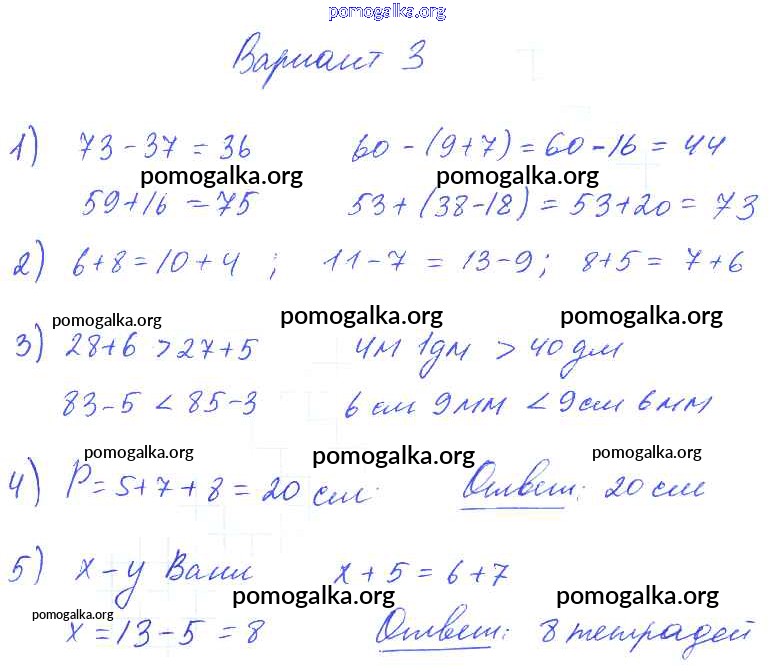 pomogalka.org
Вариант 3
1) 73 - 37 = 36 60 - (9+7) = 60 - 16 = 44
pomogalka.org pomogalka.org
59+16 = 75 53 + (38-18) = 53+20 = 73
2) 6+8 = 10+4 ; 11-7 = 13-9; 8+5 = 7+6
pomogalka.org pomogalka.org pomogalka.org
3) 28+6 > 27+5 4м 1дм > 40 дм
83-5 < 85-3 6 см 9 мм < 9 см 6 мм
pomogalka.org pomogalka.org pomogalka.org
4) P = 5+7+8 = 20 см. Ответ: 20 см
5) x - у Вани x + 5 = 6+7
pomogalka.org pomogalka.org pomogalka.org
x = 13 - 5 = 8 Ответ: 8 тетрадей